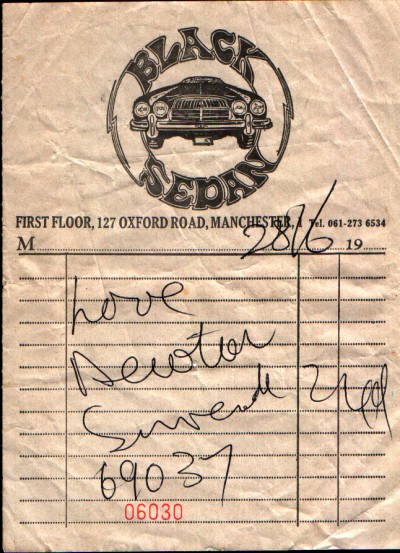 BLACK
SEDAN
FIRST FLOOR, 127 OXFORD ROAD, MANCHESTER, 1 Tel. 061-273 6534
M 28/6 19
Love
69037
06030